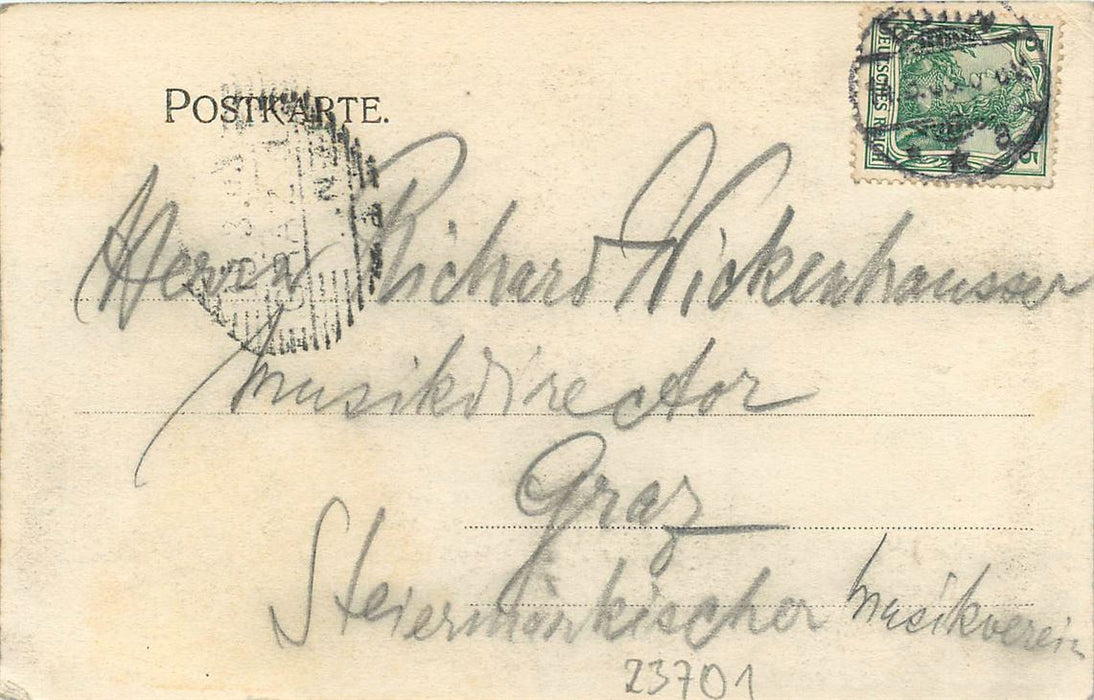 POSTKARTE.
5 5
DEUTSCHES REICH
GRAZ
Herrn Richard Wickenhausser
Musikdirector
Graz
Steiermärkischer Musikverein
23701